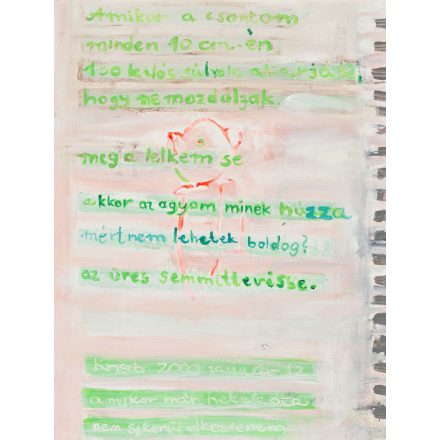 Amikor a csontom
minden 10 cm.-én
100 kilós súlyok akarják,
hogy ne mozduljak.
még a lelkem se
akkor az agyam minek húzza
mért nem lehetek boldog?
az üres semmittevésbe.
Kriszti 2000 január 12
amikor már hetek óta
nem sikerül elkezdenem